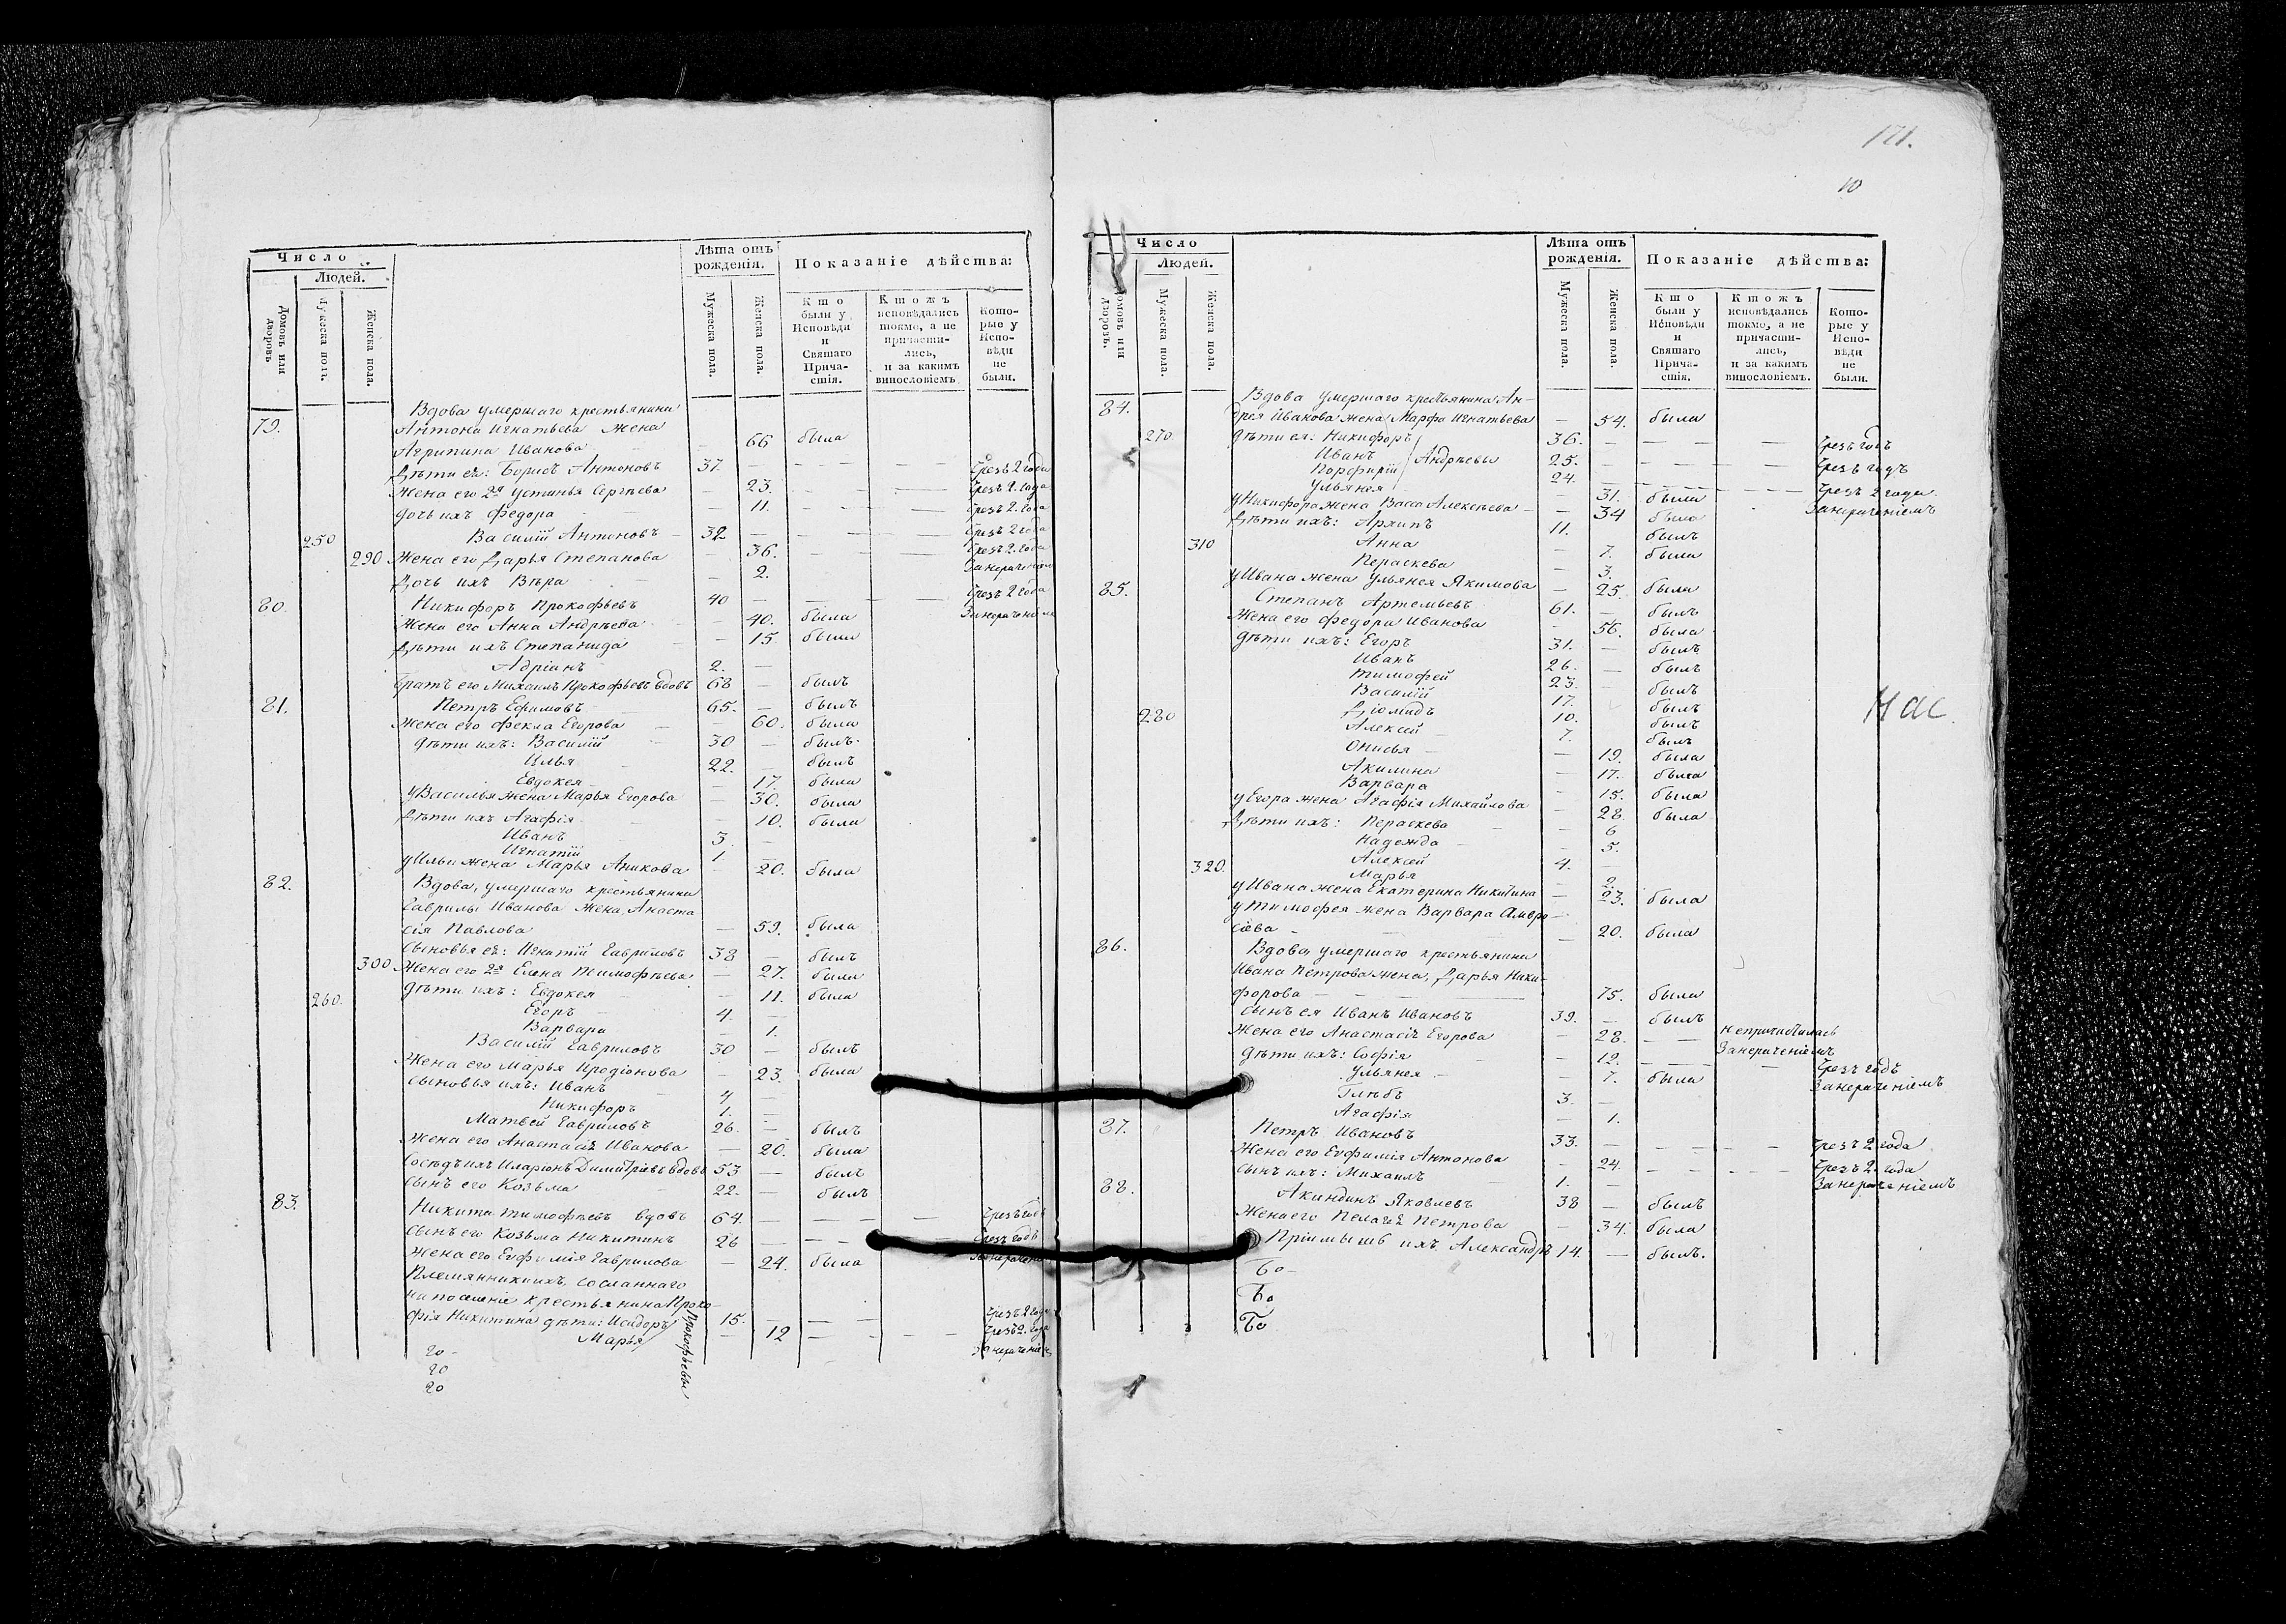 171.
10
Число
Людей.
Лѣта отъ рожденія.
Показаніе дѣйства:
Домовъ или дворовъ
Мужеска пола.
Женска пола.
Мужеска пола.
Женска пола.
Кто были у Исповѣди и Святаго Прича-стія.
Ктожъ исповѣдались токмо, а не причасти-лись, и за какимъ винословіемъ
Кото-рые у Испо-вѣди не были.
Вдова умершаго крестьянина
79. Антона Игнатьева жена
Агрипина Иванова — 66 была
Дѣти ея: Борисъ Антоновъ 37. — — — Чрезъ 2 года
Жена его 2я Устинья Сергѣева — 23. — — — Чрезъ 2. года
дочь ихъ Федора — 11. — — — Чрезъ 2. года
250 Василій Антоновъ — 32 — — — Чрезъ 2 года
290 Жена его Дарья Степанова — 36. — — — Чрезъ 2. года
Дочь ихъ Вѣра — 2. Занераченіем
80. Никифоръ Прокофьевъ 40 — — — Чрезъ 2 года
Жена его Анна Андрѣева — 40. была Занераченіем
Дѣти ихъ Степанида — 15 была
Адріанъ 2. —
Братъ его Михаилъ Прокофьевъ вдовъ 68 — былъ
81. Петръ Ефимовъ 65. — былъ
Жена его Фекла Егорова — 60. была
Дѣти ихъ: Василій 30 — былъ
Илья 22. — былъ
Евдокея — 17. была
у Василья жена Марья Егорова — 30. была
Дѣти ихъ Агафія — 10. была
Иванъ 3 —
Игнатій 1 —
у Ильи жена Марья Аникова — 20. была
82. Вдова, умершаго крестьянина
Гаврилы Иванова жена, Анаста
сія Павлова — 59. была
Сыновья ея: Игнатій Гавриловъ 38 — былъ
300 Жена его 2я Елена Тимофѣева — 27. была
260. Дѣти ихъ: Евдокея — 11. была
Егоръ 4. —
Варвара — 1.
Василій Гавриловъ 30 — былъ
Жена его Марья Иродіонова — 23. была
Сыновья ихъ: Иванъ 4 —
Никифоръ 1. —
Матвей Гавриловъ 26. — былъ
Жена его Анастасія Иванова — 20. была
Сосѣдъ ихъ Иларіонъ Димитріевъ вдовъ 53 — былъ
Сынъ его Козьма 22. — былъ
83. Никита Тимофѣевъ вдовъ 64. — — — — Чрезъ годъ
Сынъ его Козьма Никитинъ 26 — — — Чрезъ годъ
Жена его Евфимія Гаврилова — 24. была Занерачені
Племянники ихъ, сосланнаго
на поселеніе крестьянина Проко-
фія Никитина дѣти: Исидоръ 15. — — — Чрезъ 2 года
Марья — 12 — — — Чрезъ 2. года
Прокофьевы
Занераченіем
го
го
го
Число
Людей.
Лѣта отъ рожденія.
Показаніе дѣйства:
Домовъ или дворовъ.
Мужеска пола.
Женска пола.
Мужеска пола.
Женска пола.
Кто были у Исповѣди и Святаго Прича-стія.
Ктожъ исповѣдались токмо, а не причасти-лись, и за какимъ винословіемъ.
Кото-рые у Испо-вѣди не были.
84. Вдова умершаго крестьянина Ан-
дрея Иванова жена Марфа Игнатьева — 54. была
270. Дѣти ея: Никифоръ 36. — — — Чрезъ годъ
Иванъ Андрѣевы 25. — — — Чрезъ годъ
Порфирій 24. — — — Чрезъ 2 года.
Ульянея — 31. была Занераченіемъ
у Никифора жена Васса Алексѣева — 34 была
Дѣти ихъ: Архипъ 11. былъ
310 Анна — 7. была
Пераскева — 3.
у Ивана жена Ульянея Якимова — 25. была
85. Степанъ Артемьевъ 61. — былъ
Жена его Федора Иванова — 56. была
Дѣти ихъ: Егоръ 31. — былъ
Иванъ 26. — былъ
Тимофей 23. — былъ
Василій 17. былъ
280 Діомидъ 10. былъ
Алексѣй 7. былъ
Онисья — 19. была
Акилина — 17. была
Варвара — 15. была
у Егора жена Агафія Михайлова — 28. была
Дѣти ихъ: Пераскева — 6
Надежда — 5.
320. Алексѣй 4. —
Марья — 2.
у Ивана жена Екатерина Никитина — 23. была
у Тимофея жена Варвара Амвро
сіева — 20. была
86. Вдова, умершаго крестьянина
Ивана Петрова жена, Дарья Ники-
форова — 75. была
Сынъ ея Иванъ Ивановъ 39. — былъ
Жена его Анастасія Егорова — 28. — — непричастилась
Занераченіемъ
Дѣти ихъ: Софія — 12. — — Чрезъ годъ
Ульянея — 7. была Занераченіемъ
Глѣбъ 3 —
Агафія — 1.
87. Петръ Ивановъ 33. — — — Чрезъ 2 года
Жена его Евфимія Антонова — 24. — — — Чрезъ 2. года
Сынъ ихъ: Михаилъ 1. — Занераченіемъ
88. Акиндинъ Яковлевъ 38 — былъ
Жена его Пелагея Петрова — 34. была
Пріимышъ ихъ Александръ 14. — былъ.
Бо-
Бо
Бо